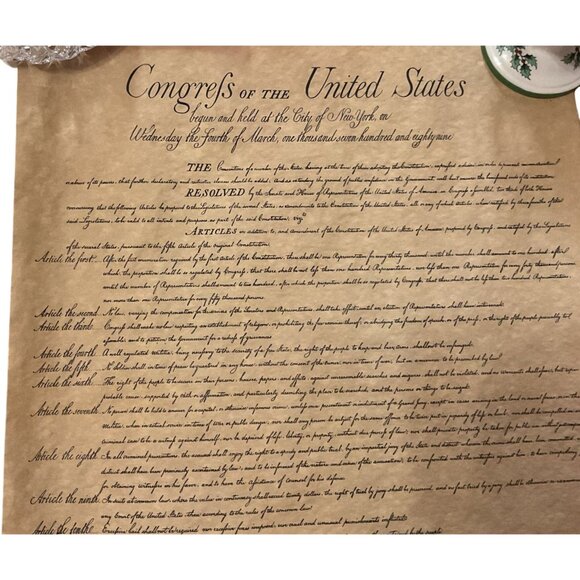 Congreſs OF THE United States
begun and held at the City of New-York, on
Wednesday the Fourth of March, one thousand seven hundred and eighty nine
THE Conventions of a number of the States, having at the time of their adopting the Constitution, expreſsed a desire, in order to prevent misconstruction
or abuse of its powers, that further declaratory and restrictive clauses should be added: And as extending the ground of public confidence in the Government, will best ensure the beneficent ends of its institution
RESOLVED by the Senate and House of Representatives of the United States of America, in Congreſs aſsembled, two thirds of both Houses
concurring, that the following Articles be proposed to the Legislatures of the several States, as amendments to the Constitution of the United States, all or any of which Articles, when ratified by three fourths of the
said Legislatures, to be valid to all intents and purposes, as part of the said Constitution; viz.t
ARTICLES in addition to, and amendment of the Constitution of the United States of America, proposed by Congreſs, and ratified by the Legislatures
of the several States, pursuant to the fifth Article of the original Constitution.
Article the first... After the first enumeration required by the first Article of the Constitution, there shall be one Representative for every thirty thousand, until the number shall amount to one hundred, after
which, the proportion shall be so regulated by Congreſs, that there shall be not leſs than one hundred Representatives, nor leſs than one Representative for every forty thousand persons,
until the number of Representatives shall amount to two hundred, after which, the proportion shall be so regulated by Congreſs, that there shall not be leſs than two hundred Representatives,
nor more than one Representative for every fifty thousand persons.
Article the second... No law, varying the compensation for the services of the Senators and Representatives, shall take effect, until an election of Representatives shall have intervened.
Article the third... Congreſs shall make no law respecting an establishment of religion, or prohibiting the free exercise thereof; or abridging the freedom of speech, or of the preſs; or the right of the people peaceably to
aſsemble, and to petition the Government for a redreſs of grievances
Article the fourth... A well regulated militia, being neceſsary to the security of a free State, the right of the people to keep and bear arms, shall not be infringed.
Article the fifth... No Soldier shall, in time of peace be quartered in any house, without the consent of the owner, nor in time of war, but in a manner to be prescribed by law.
Article the sixth... The right of the people to be secure in their persons, houses, papers, and effects, against unreasonable searches and seizures, shall not be violated, and no warrants shall iſsue, but upon
probable cause, supported by oath or affirmation, and particularly describing the place to be searched, and the persons or things to be seized.
Article the seventh... No person shall be held to answer for a capital, or otherwise infamous crime, unleſs on a presentment or indictment of a Grand Jury, except in cases arising in the land or naval forces, or in the
Militia, when in actual service in time of war or public danger; nor shall any person be subject for the same offence to be twice put in jeopardy of life or limb; nor shall be compelled in any
criminal case to be a witneſs against himself, nor be deprived of life, liberty, or property, without due proceſs of law; nor shall private property be taken for public use without just
Article the eighth... In all criminal prosecutions, the accused shall enjoy the right to a speedy and public trial, by an impartial jury of the State and district wherein the crime shall have been committed, which
district shall have been previously ascertained by law, and to be informed of the nature and cause of the accusation; to be confronted with the witneſses against him; to have compulsory
for obtaining witneſses in his favor, and to have the aſsistance of counsel for his defence.
Article the ninth... In suits at common law, where the value in controversy shall exceed twenty dollars, the right of trial by jury shall be preserved, and no fact, tried by a jury, shall be otherwise re-examined
any Court of the United States, than according to the rules of the common law.
Article the tenth... Exceſsive bail shall not be required, nor exceſsive fines imposed, nor cruel and unusual punishments inflicted.
by the people